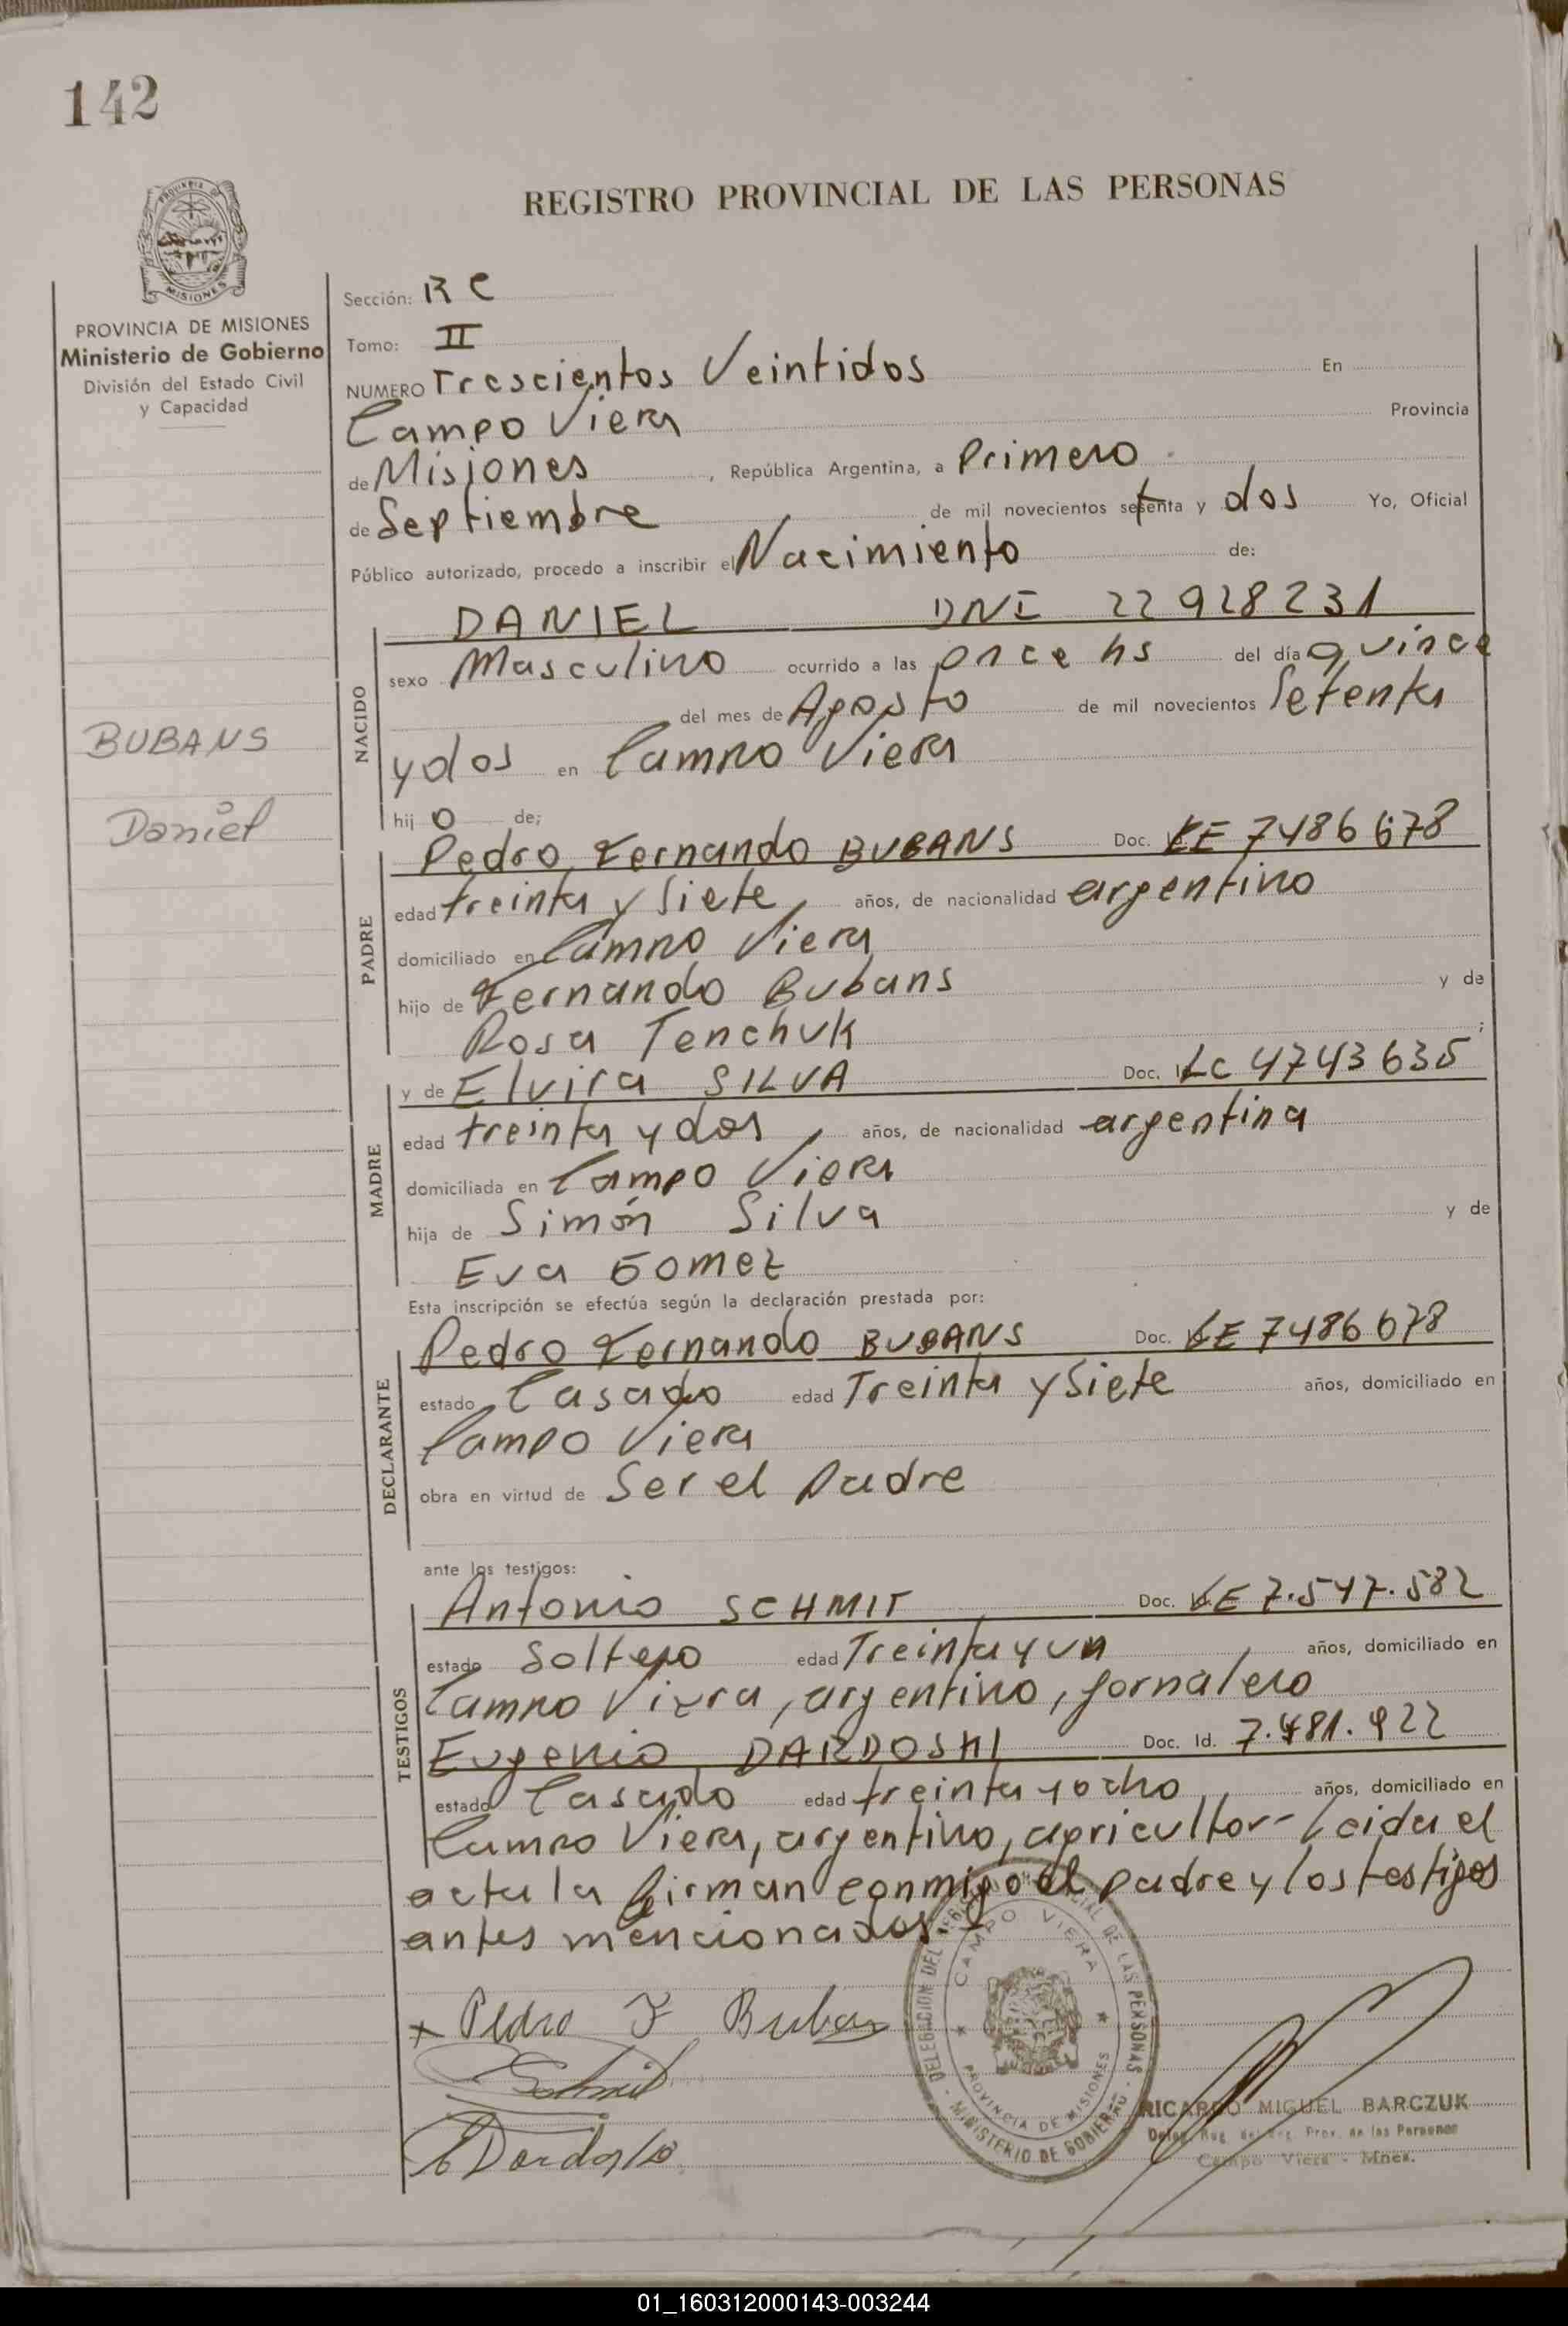 142
REGISTRO PROVINCIAL DE LAS PERSONAS
PROVINCIA DE MISIONES
Ministerio de Gobierno
División del Estado Civil
y Capacidad
BUBANS
Daniel
Sección: RC
Tomo: II
NUMERO Trescientos Veintidos En
Campo Viera Provincia
de Misiones , República Argentina, a Primero
de Septiembre de mil novecientos setenta y dos Yo, Oficial
Público autorizado, procedo a inscribir el Nacimiento de:
NACIDO
DANIEL DNI 22 928231
sexo Masculino ocurrido a las once hs del día quince
del mes de Agosto de mil novecientos Setenta
y dos en Campo Viera
hij o de;
PADRE
Pedro Fernando BUBANS Doc. LE 7486678
edad treinta y Siete, años, de nacionalidad argentino
domiciliado en Campo Viera
hijo de Fernando Bubans y de
Rosa Tenchuk ;
MADRE
y de Elvira SILVA Doc. LC 4743635
edad treinta y dos, años, de nacionalidad argentina
domiciliada en Campo Viera
hija de Simón Silva y de
Eva Gomez
Esta inscripción se efectúa según la declaración prestada por:
DECLARANTE
Pedro Fernando BUBANS Doc. LE 7486678
estado Casado edad Treinta y Siete años, domiciliado en
Campo Viera
obra en virtud de Ser el Padre
ante los testigos:
TESTIGOS
Antonio SCHMIT Doc. LE 7.547.582
estado Soltero edad Treinta y un años, domiciliado en
Campo Viera, argentino, jornalero
Eugenio DARDOSHI Doc. Id. 7.481.922
estado Casado edad treinta y ocho, años, domiciliado en
Campo Viera, argentino, agricultor- Leida el
acta la firman conmigo el padre y los testigos
antes mencionados.-
x Pedro F Bubans
Schmit
DELEGACION DEL REGISTRO PROVINCIAL DE LAS PERSONAS - MINISTERIO DE GOBIERNO -
CAMPO VIERA
PROVINCIA DE MISIONES
RICARDO MIGUEL BARCZUK
Deleg. Reg. del Reg. Prov. de las Personas
Campo Viera - Mnes.
01_160312000143-003244